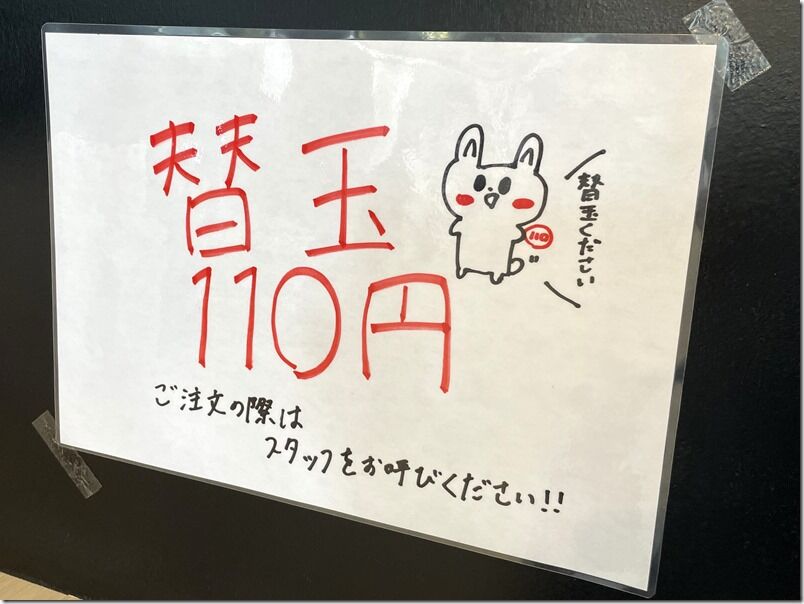 替玉
110円
替玉ください
110
ご注文の際は
スタッフをお呼びください!!